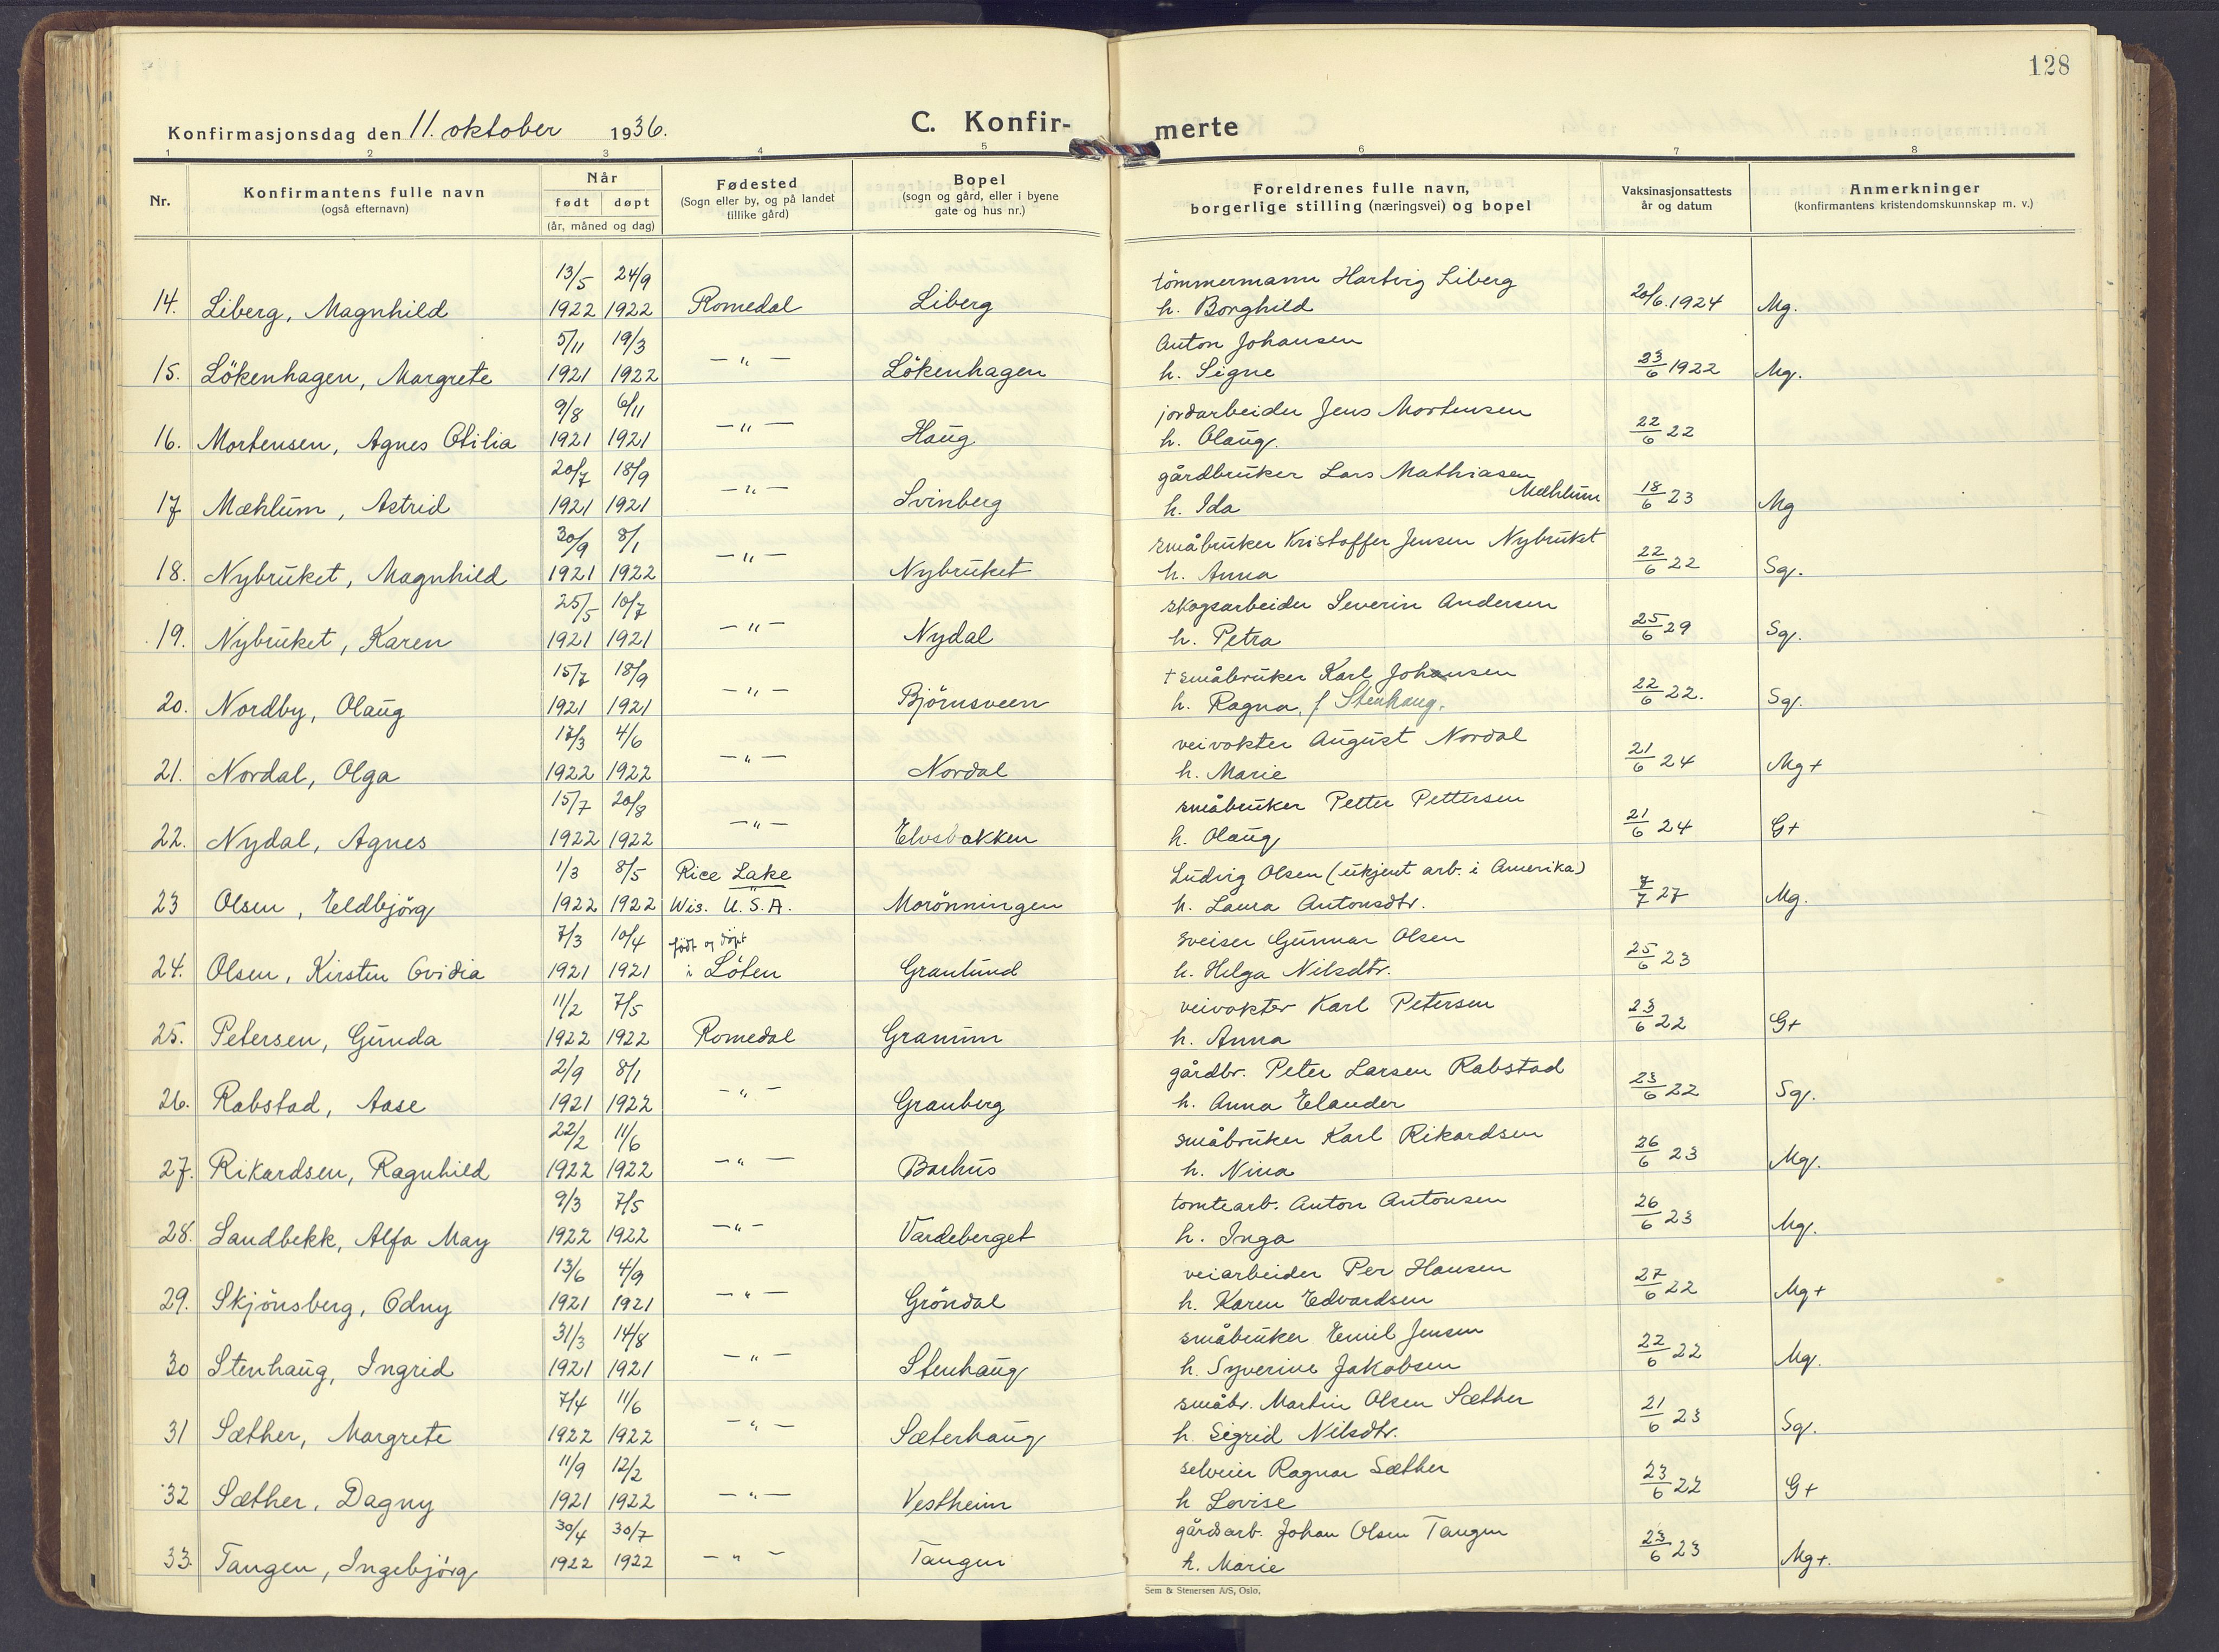 128
Konfirmasjonsdag den 11. oktober 1936.
C. Konfir-merte
1 2 3 4 5 6 7 8
Nr.
Konfirmantens fulle navn
(også efternavn)
Når
født døpt
(år, måned og dag)
Fødested
(Sogn eller by, og på landet
tillike gård)
Bopel
(sogn og gård, eller i byene
gate og hus nr.)
Foreldrenes fulle navn,
borgerlige stilling (næringsvei) og bopel
Vaksinasjonsattests
år og datum
Anmerkninger
(konfirmantens kristendomskunnskap m. v.)
13/5 24/9 tömmermann Hartvig Liberg
14. Liberg, Magnhild 1922 1922 Romedal Liberg h. Borghild 20/6.1924 Mg.
5/11 19/3 Anton Johansen
15. Lökenhagen, Margrete 1921 1922 -"- Lökenhagen h. Signe 23/6 1922 Mg.
9/8 6/11 jordarbeider Jens Mortensen
16. Mortensen, Agnes Otilia 1921 1921 -"- Haug h. Olaug. 22/6 22
20/7 18/9 gårdbruker Lars Mathiasen
Mæhlum
17 Mæhlum, Astrid 1921 1921 -"- Svinberg h. Ida 18/6 23 Mg
30/9 8/1 småbruker Kristoffer Jensen Nybruket
18. Nybruket, Magnhild 1921 1922 -"- Nybruket h. Anna 22/6 22 Sg.
25/5 10/7 skogsarbeider Severin Andersen
19. Nybruket, Karen 1921 1921 -"- Nydal h. Petra 25/6 29 Sg.
15/7 18/9 † småbruker Karl Johansen
20. Nordby, Olaug 1921 1921 -"- Bjørnsveen h. Ragna, f Stenhaug. 22/6 22. Sg.
4/6 veivokter August Nordal
21. Nordal, Olga 1922 1922 -"- Nordal h. Marie 21/6 24 Mg+
15/7 20/8 småbruker Petter Pettersen
22. Nydal, Agnes 1922 1922 -"- Elvsbakken h. Olaug 21/6 24 G+
1/3 8/5 Rice Lake Ludvig Olsen (ukjent arb. i Amerika)
23 Olsen, Eldbjörg 1922 1922 Wis. U.S.A. Morönningen h. Laura Antonsdtr. 7/7 27 Mg.
7/3 10/4 født og døpt sveiser Gunnar Olsen
24. Olsen, Kirsten Ovidia 1921 1921 i Löten Granlund h. Helga Nilsdtr. 25/6 23
11/2 7/5 veivokter Karl Petersen
25. Petersen, Gunda 1922 1922 Romedal Granum h. Anna 23/6 22 G+
2/9 8/1 gårdbr. Peter Larsen Rabstad
26. Rabstad, Aase 1921 1922 -"- Granberg h. Anna Elander 23/6 22 Sg.
22/2 11/6 småbruker Karl Rikardsen
27. Rikardsen, Ragnhild 1922 1922 -"- Barhus h. Nina 26/6 23 Mg.
9/3 7/5 tomtearb. Anton Antonsen
28. Sandbekk, Alfa May 1922 1922 -"- Vardeberget h. Inga 26/6 23 Mg.
13/6 4/9 veiarbeider Per Hansen
29. Skjönsberg, Odny 1921 1921 -"- Gröndal h. Karen Edvardsen 27/6 22 Mg+
31/3 14/8 småbruker Emil Jensen
30 Stenhaug, Ingrid 1921 1921 -"- Stenhaug h. Syverine Jakobsen 22/6 22 Mg.
7/4 11/6 småbr. Martin Olsen Sæther
31 Sæther, Margrete 1922 1922 -"- Sæterhaug h. Sigrid Nilsdtr. 21/6 23 Sg.
11/9 12/2 selveier Ragnar Sæther
32 Sæther, Dagny 1921 1922 -"- Vestheim h Lovise 23/6 22 G+
30/4 30/7 gårdsarb. Johan Olsen Tangen
33. Tangen, Ingebjörg 1922 1922 -"- Tangen h. Marie 23/6 23 Mg+.
Sem & Stenersen A/S, Oslo.